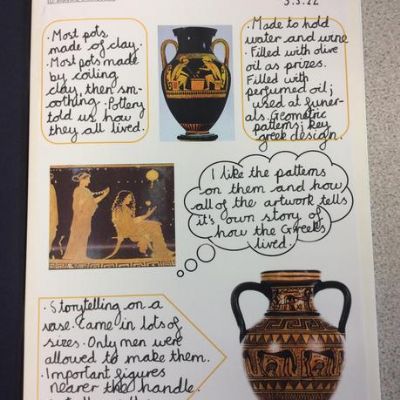 3.3.22
· Most pots
made of clay.
· Most pots made
by coiling
clay, then sm-
oothing. · Pottery
told us how
they all lived.
· Made to hold
water and wine
· Filled with olive
oil as prizes.
Filled with
perfumed oil;
used at funer-
als. Geometric
patterns; key
greek design.
I like the patterns
on them and how
all of the artwork tells
it's own story of
how the Greeks
lived.
· Storytelling on a
vase. Came in lots of
sizes. · Only men were
allowed to make them.
· Important figures
nearer the handle.